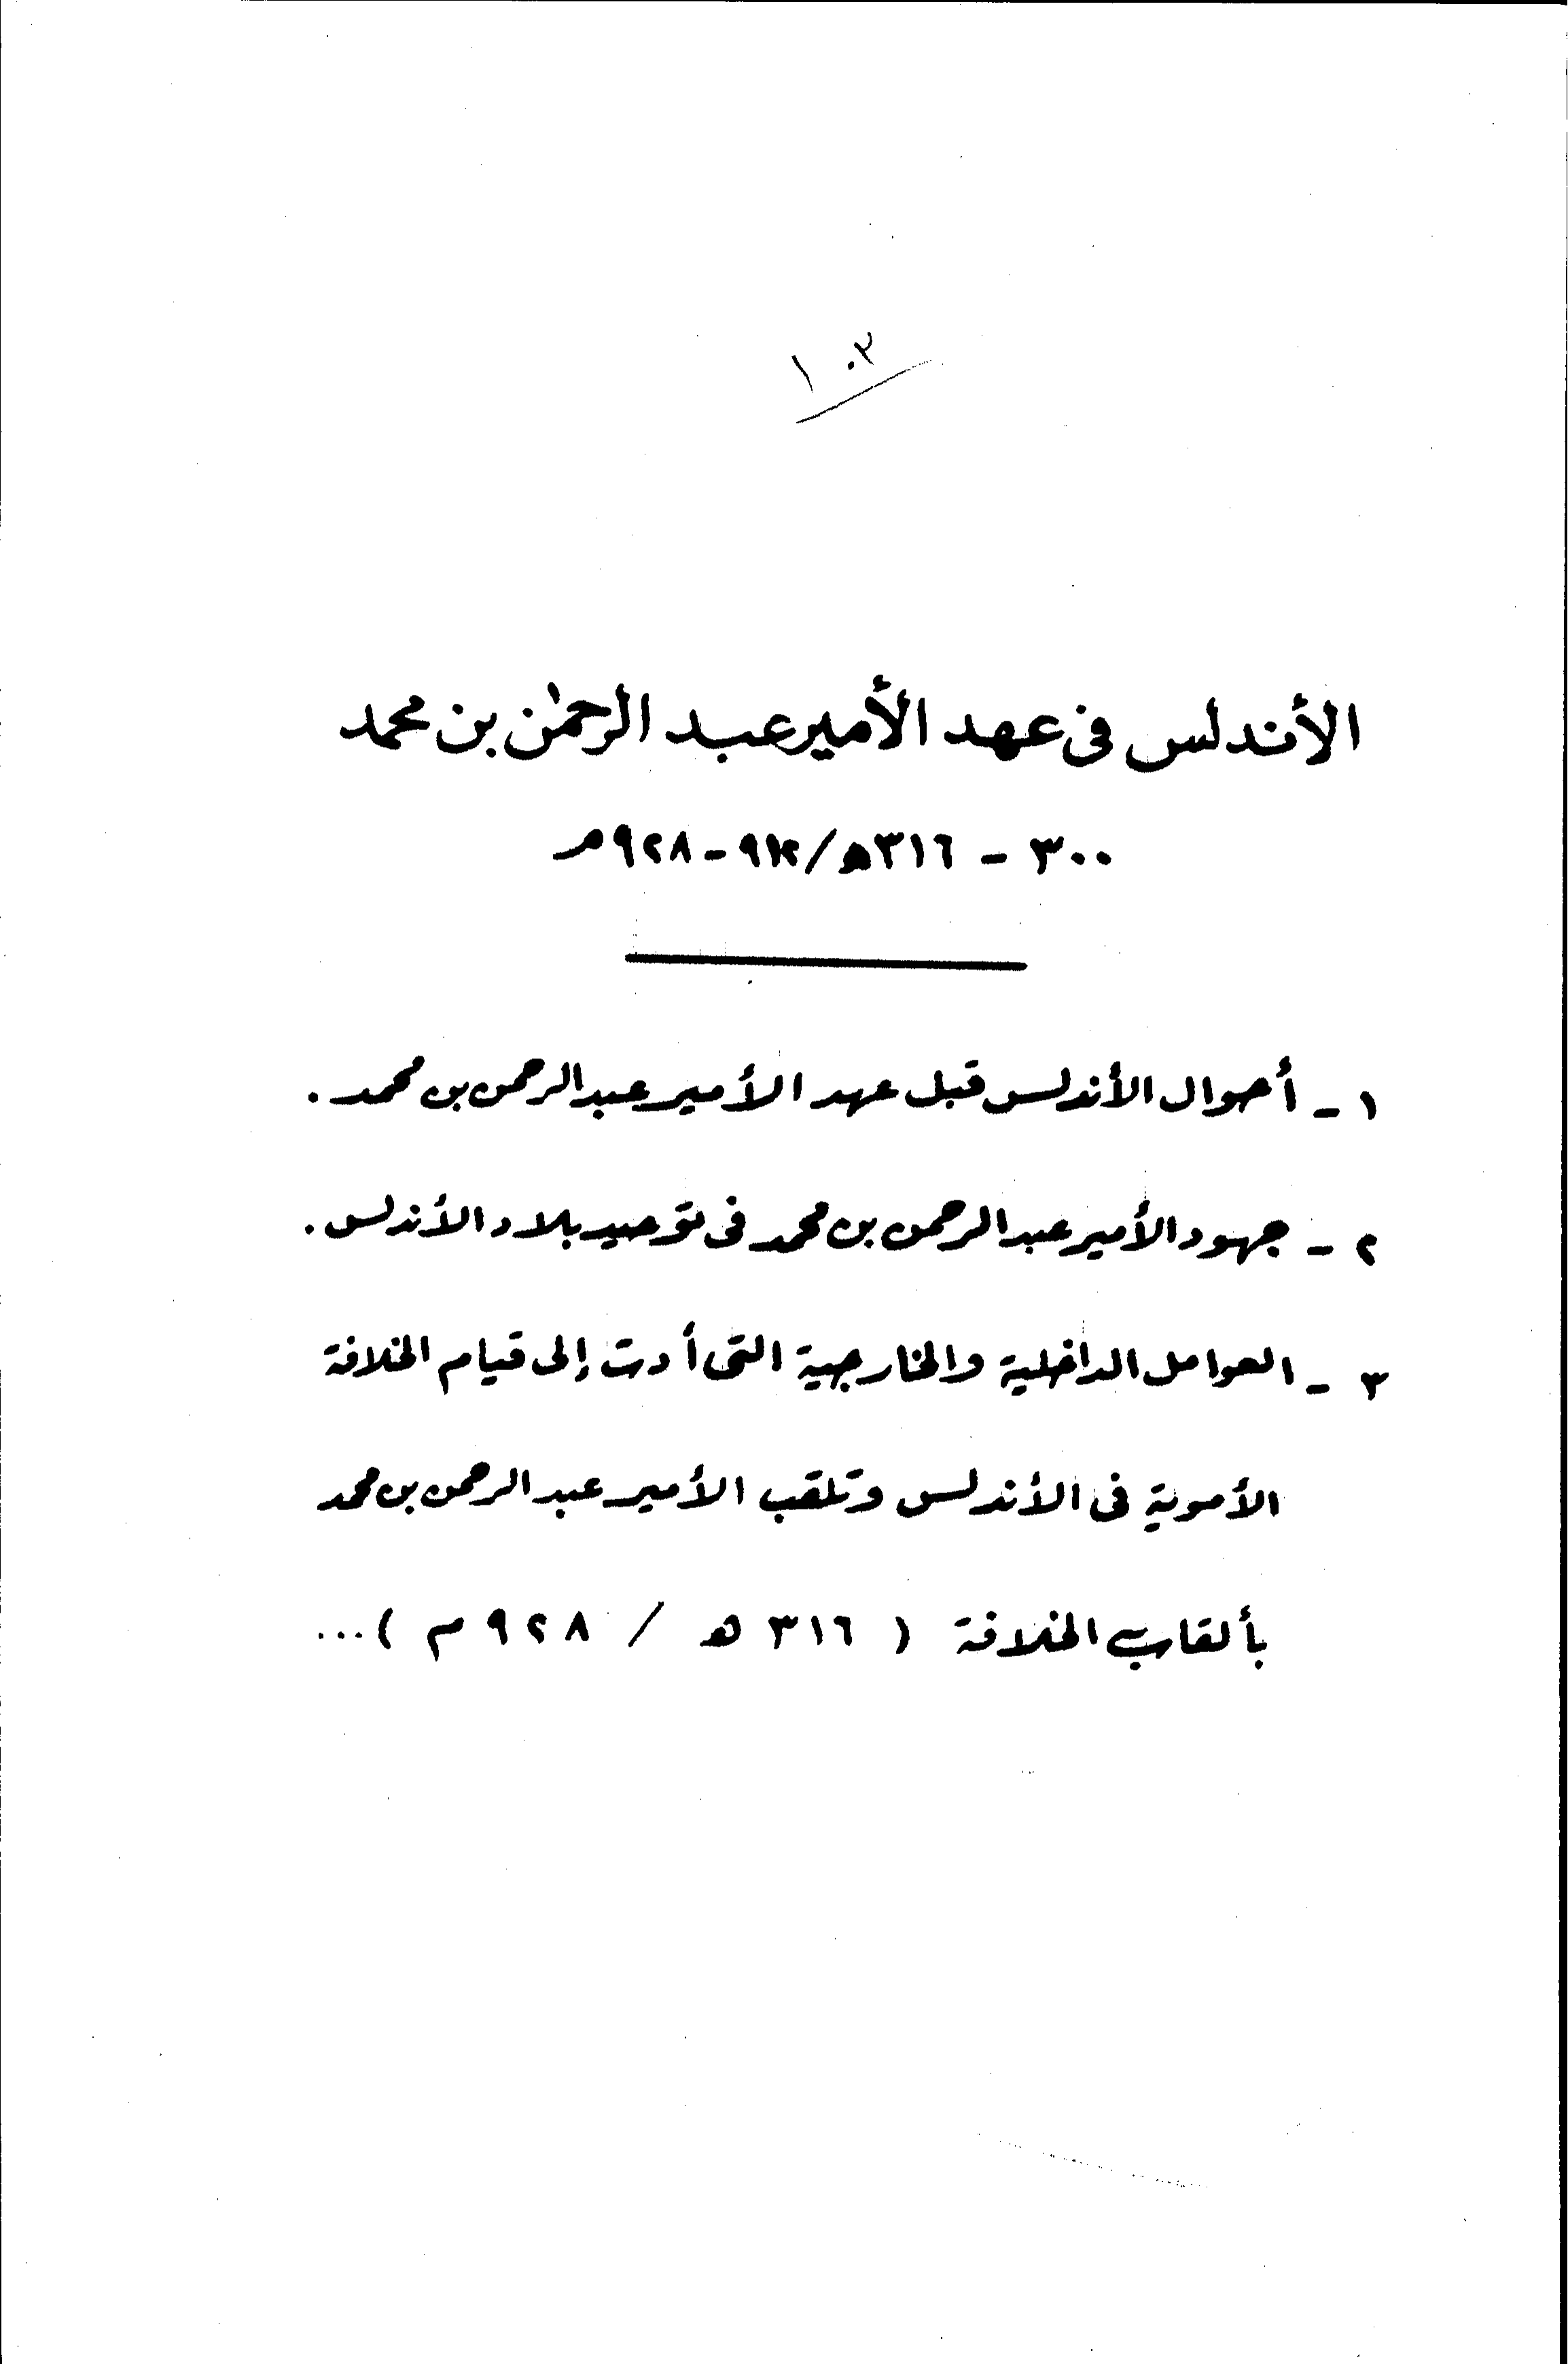 ١٠٣
الأندلس فى عهد الأمير عبد الرحمٰن بن محمد
٣٠٠ - ٣١٦ه/٩١٢-٩٢٨م
١ - أحوال الأندلس قبل عهد الأمير عبد الرحمن بن محمد .
٢ - جهود الأمير عبد الرحمن بن محمد فى توحيد بلاد الأندلس .
٣ - العوامل الداخلية والخارجية التى أدت إلى قيام الخلافة
الأموية فى الأندلس وتلقب الأمير عبد الرحمن بن محمد
بألقاب الخلافة ( ٣١٦ ه / ٩٢٨ م ) ...